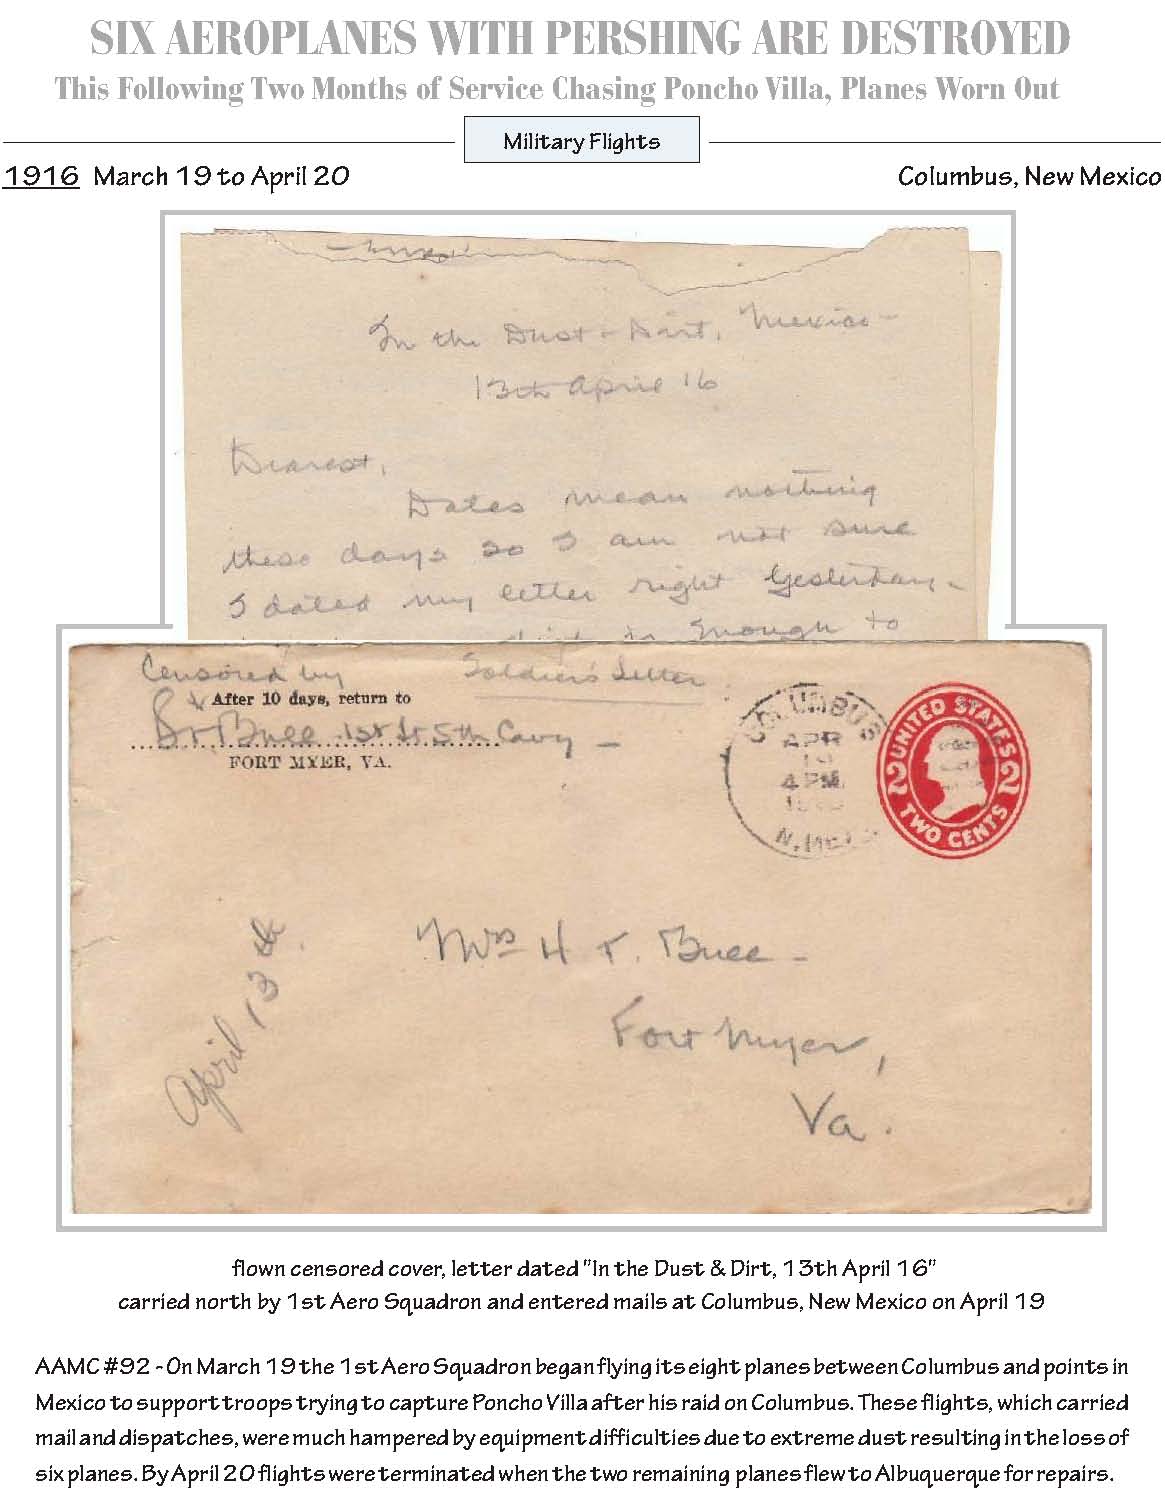 SIX AEROPLANES WITH PERSHING ARE DESTROYED
This Following Two Months of Service Chasing Poncho Villa, Planes Worn Out
Military Flights
1916 March 19 to April 20
Columbus, New Mexico
In the Dust & Dirt, Mexico-
13th April 16
Dearest,
Dates mean nothing
these days so I am not sure
I dated my letter right yesterday-
enough to
Censored by
Soldier's Letter
After 10 days, return to
Buell 1st Lt 5th Cavy -
FORT MYER, VA.
COLUMBUS
APR
4 PM
N. MEX
UNITED STATES
2 2
TWO CENTS
April 13th.
Mrs H T. Buell -
Fort Myer,
Va.
flown censored cover, letter dated "In the Dust & Dirt, 13th April 16"
carried north by 1st Aero Squadron and entered mails at Columbus, New Mexico on April 19
AAMC #92 - On March 19 the 1st Aero Squadron began flying its eight planes between Columbus and points in
Mexico to support troops trying to capture Poncho Villa after his raid on Columbus. These flights, which carried
mail and dispatches, were much hampered by equipment difficulties due to extreme dust resulting in the loss of
six planes. By April 20 flights were terminated when the two remaining planes flew to Albuquerque for repairs.